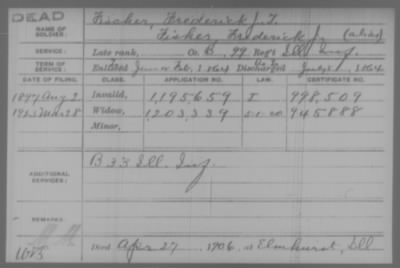 DEAD
NAME OF SOLDIER: Fischer, Frederick J. T.
Fisher, Frederick J. (alias)
SERVICE: Late rank, Co. B, 99 Reg't Ill Inf.
TERM OF SERVICE: Enlisted Feb, 1864 Discharged July, 1864
DATE OF FILING. CLASS. APPLICATION NO. LAW. CERTIFICATE NO.
1897 Aug 2 Invalid, 1,195,659 I 998,509
Mar 28 Widow, 1,203,339 945888
Minor,
ADDITIONAL SERVICES: B 33 Ill. Inf.
REMARKS:
Died Apr 27, 1906, at Elmhurst, Ill